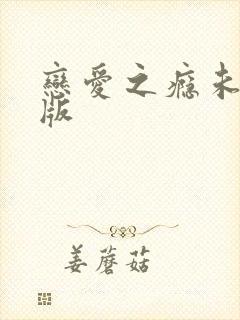 戀愛之癮未
版
姜蘑菇